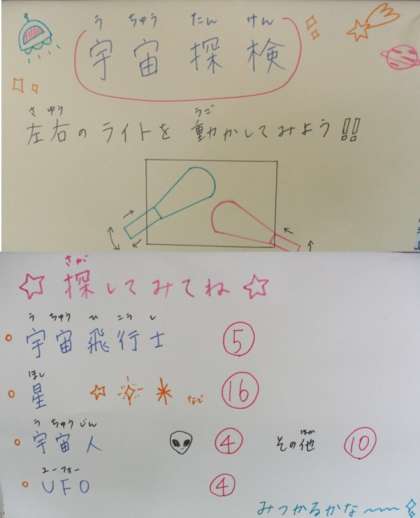 うちゅうたんけん
宇宙探検
さゆう うご
左右のライトを動かしてみよう!!
さが
☆探してみてね☆
うちゅうひこうし
宇宙飛行士 ⑤
ほし
星 など ⑯
うちゅうじん ほか
宇宙人 ④ その他 ⑩
ユーフォー
UFO ④
みつかるかな〜〜